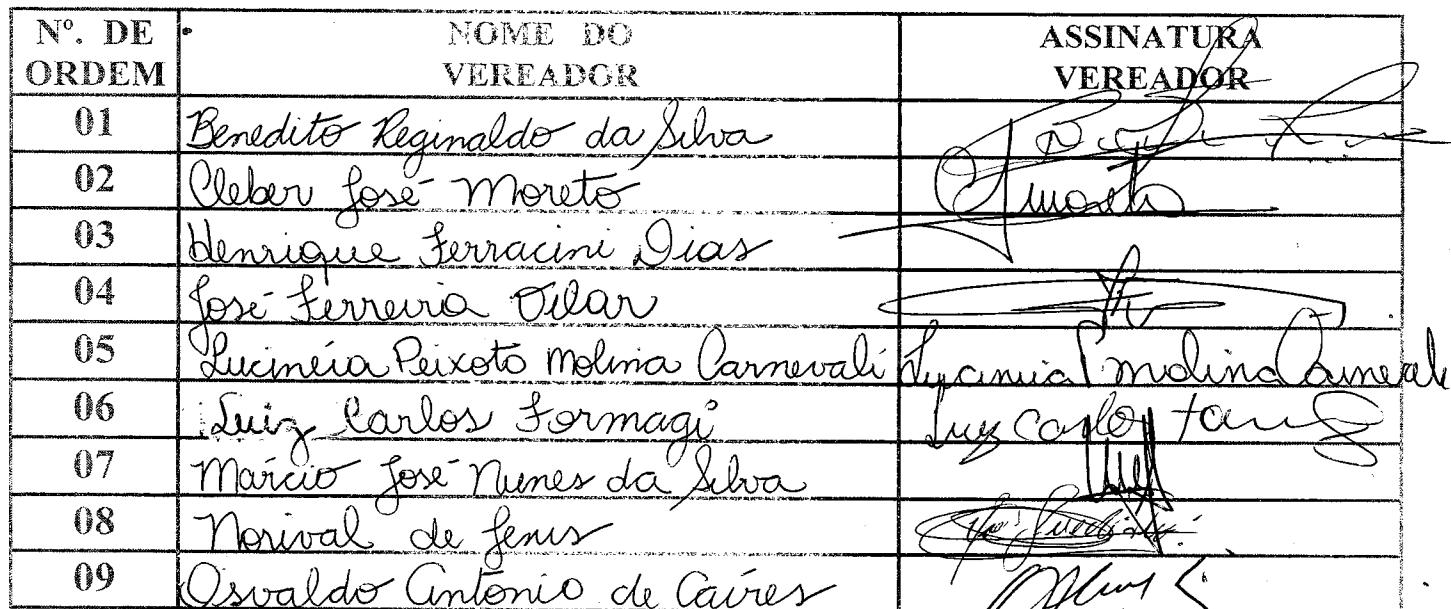 Nº. DE ORDEM NOME DO VEREADOR ASSINATURA VEREADOR
01 Benedito Reginaldo da Silva
02 Cleber José Moreto
03 Henrique Ferracini Dias
04 José Ferreira Vilar
05 Lucinéia Peixoto Molina Carnevali
06 Luiz Carlos Formagi
07 Márcio José Nunes da Silva
08 Norival de Jenus
09 Osvaldo Antônio de Caires